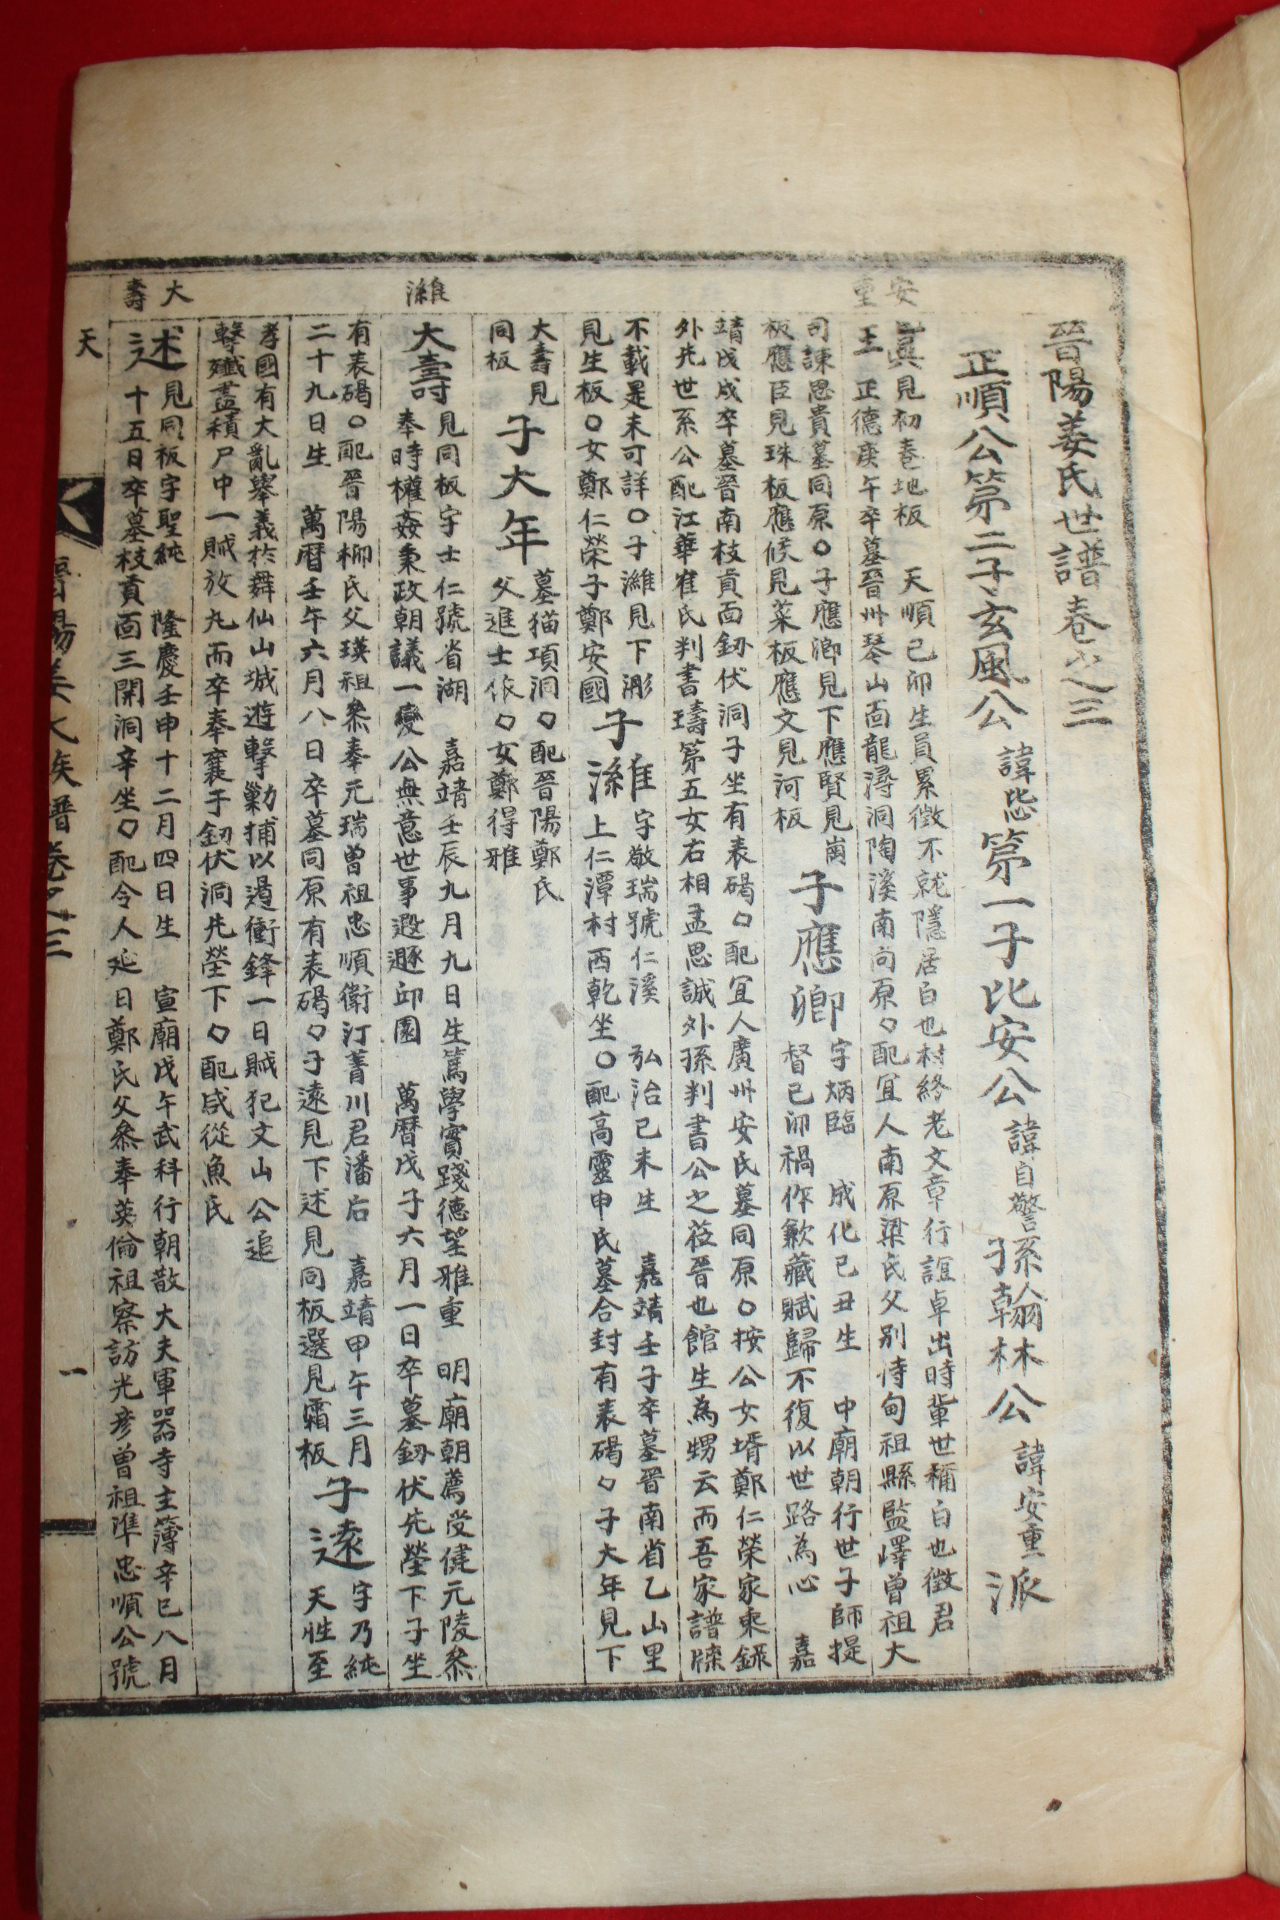 晉陽姜氏世譜卷之三
正順公第二子玄風公 諱𢘆 第一子比安公 諱自警 孫翰林公 諱安重 派
安重
眞見初卷地板 天順己卯生員累徵不就隱居白也村終老文章行誼卓出時輩世稱白也徵君
正德庚午卒墓晉州琴山面龍潯洞陶溪南向原○配宜人南原梁氏父別侍甸祖縣監嶧曾祖大
司諫思貴墓同原○子應卿見下應賢見崗
板應臣見珠板應候見菜板應文見河板
子應卿
字炳臨 成化己丑生 中廟朝行世子師提
督己卯禍作歉藏賦歸不復以世路為心 嘉
靖戊戌卒墓晉南枝貢面釰伏洞子坐有表碣○配宜人廣州安氏墓同原○按公女壻鄭仁榮家乘錄
外先世系公配江華崔氏判書璹第五女右相孟思誠外孫判書公之莅晉也館生為甥云而吾家譜牒
不載是未可詳○子濰見下浵
見生板○女鄭仁榮子鄭安國
濰
子濰
字敬瑞號仁溪 弘治己未生 嘉靖壬子卒墓晉南省乙山里
上仁潭村西乾坐○配高靈申氏墓合封有表碣○子大年見下
大壽見
同板
子大年
墓猫項洞○配晉陽鄭氏
父進士依○女鄭得雅
大壽
見同板字士仁號省湖 嘉靖壬辰九月九日生篤學實踐德望雅重 明廟朝薦受健元陵叅
奉時權姦秉政朝議一變公無意世事遐遯邱園 萬曆戊子六月一日卒墓釰伏先塋下子坐
有表碣○配晉陽柳氏父瑛祖叅奉元瑞曾祖忠順衛汀菁川君潘后 嘉靖甲午三月
二十九日生 萬曆壬午六月八日卒墓同原有表碣○子遠見下述見同板選見霜板
子遠
字乃純
天性至
孝國有大亂擧義於舞仙山城遊擊勦捕以遏衝鋒一日賊犯文山公追
擊殲盡積尸中一賊放丸而卒奉襄于釰伏洞先塋下○配咸從魚氏
大壽
述
見同板字聖純 隆慶壬申十二月四日生 宣廟戊午武科行朝散大夫軍器寺主簿辛巳八月
十五日卒墓枝貢面三開洞辛坐○配令人延日鄭氏父叅奉英倫祖察訪光彦曾祖準忠順公號
天
晉陽姜氏族譜卷之三
一